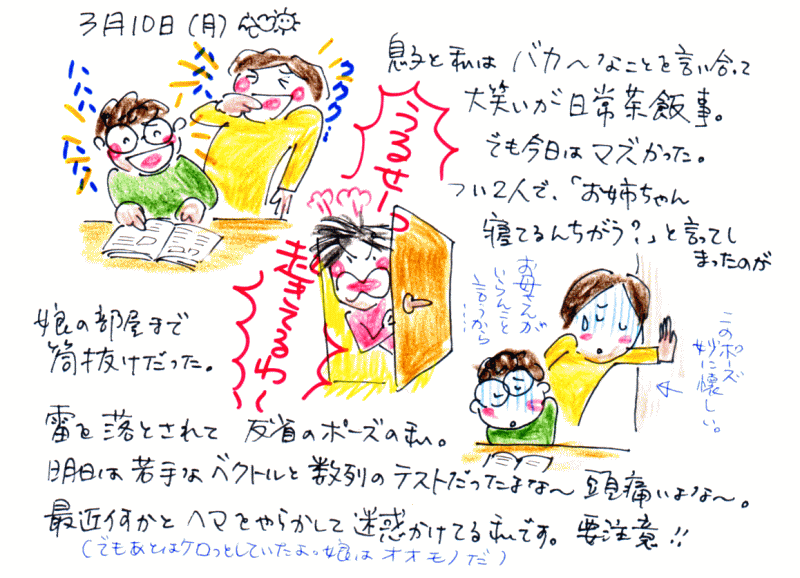 3月10日(月)
ハハハ
ハハハ
ククク…
息子と私は バカ〜なことを言い合って
大笑いが日常茶飯事。
でも今日は マズかった。
つい2人で、「お姉ちゃん
寝てるんちがう?」と言ってし
まったのが
うるせーっ
起きてるわー
娘の部屋まで
筒抜けだった。
お母さんが
いらんこと
言うから…
このポーズ
妙に懐しい。
雷を落とされて 反省のポーズの私。
明日は苦手なベクトルと数列のテストだったよな〜 頭痛いよな〜。
最近何かとヘマをやらかして迷惑かけてる私です。要注意!!
(でもあとはケロっとしていたよ。娘はオオモノだ)